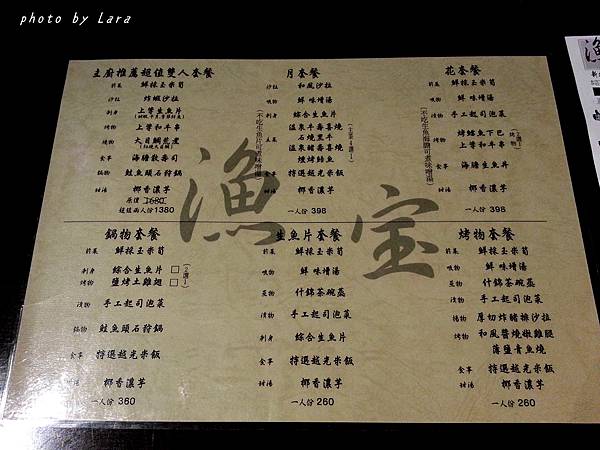 photo by Lara
漁宝
主廚推薦超值雙人套餐
前菜 鮮採玉米筍
沙拉 炸蝦沙拉
刺身 上等生魚片
烤物 上等和牛串
燒物 大目鯛煮/燒
食事 海膽飯壽司
鍋物 鮭魚頭石狩鍋
甜湯 椰香濃芋
原價 1680
超值兩人份1380
月套餐
沙拉 和風沙拉
吸物 鮮味增湯
刺身 綜合生魚片
(不吃生魚片可煮味增湯)
主菜 溫泉牛壽喜燒
溫泉豚壽喜燒
石燒黑牛
(主菜4選1)
食事 特選越光米飯
甜湯 椰香濃芋
一人份 398
花套餐
前菜 鮮採玉米筍
吸物 鮮味增湯
漬物 手工起司泡菜
烤物 烤鱈魚下巴
上等和牛串
食事 海膽生魚丼
甜湯 椰香濃芋
一人份 398
鍋物套餐
前菜 鮮採玉米筍
刺身 綜合生魚片 □
烤物 鹽烤土雞翅 □
(2選1)
漬物 手工起司泡菜
鍋物 鮭魚頭石狩鍋
食事 特選越光米飯
甜湯 椰香濃芋
一人份 360
生魚片套餐
前菜 鮮採玉米筍
吸物 鮮味增湯
蒸物 什錦茶碗蒸
漬物 手工起司泡菜
刺身 綜合生魚片
食事 特選越光米飯
甜湯 椰香濃芋
一人份 260
烤物套餐
前菜 鮮採玉米筍
吸物 鮮味增湯
蒸物 什錦茶碗蒸
漬物 手工起司泡菜
揚物 厚切炸豬排沙拉
烤物 和風醬燒嫩雞腿
薄鹽青魚燒
食事 特選越光米飯
甜湯 椰香濃芋
一人份 260